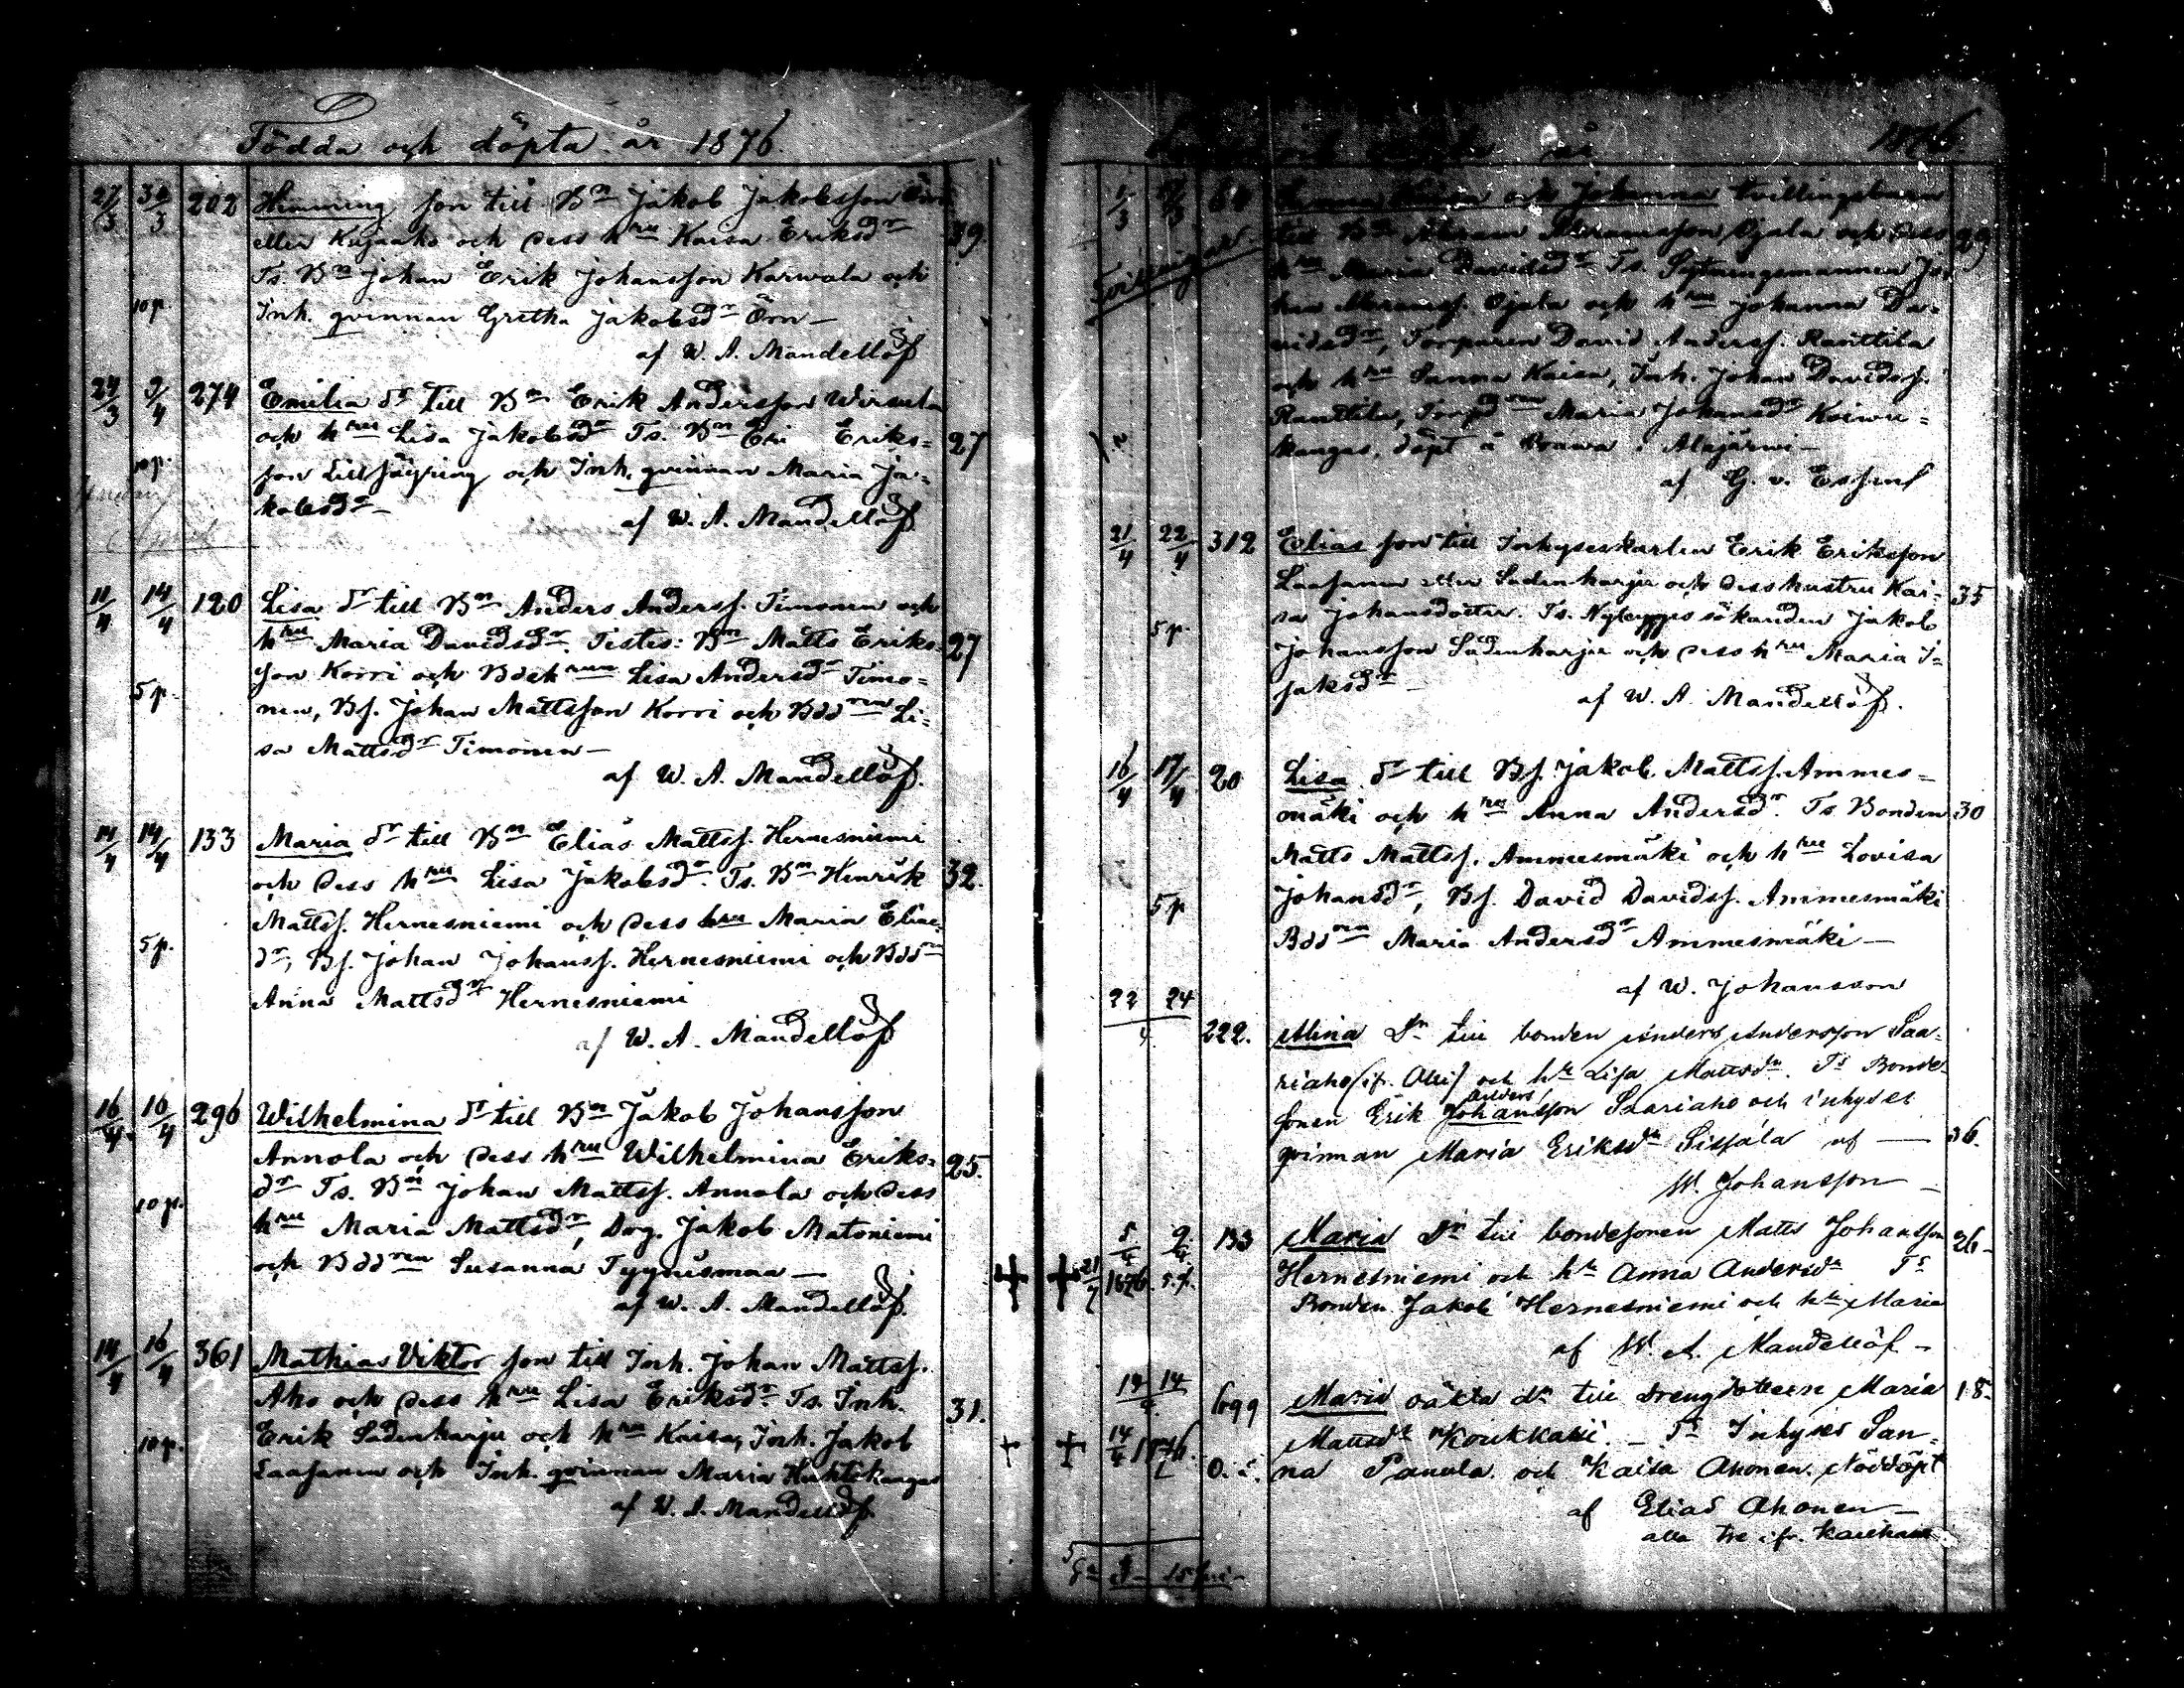 Födda och döpta år 1876.
27/3 30/3 202 Henning son till Bn Jakob Jakobsson
eller Kujanko och dess hru Kaisa Eriksdr 39.
Ts. Bn Johan Erik Johansson Karwala och
10 p. Inh. qvinnan Gretha Jakobsdr Örn —
af W. A. Mandellöf
24/3 9/4 274 Emilia dr till Bn Erik Andersson Wirsula
och hru Lisa Jakobsdr Ts. Bn Eri Eriks= 27
10 p. son och Inh. qvinnan Maria Ja=
kobsdr —
af W. A. Mandellöf
April
11/4 14/4 120 Lisa dr till Bn Anders Anderss. Timonen och
hru Maria Davidsdr. Testes: Bn Matts Eriks= 27
son Korri och Bdehrun Lisa Andersdr Timo=
5 p. nen, Bs. Johan Mattsson Korri och Bddren Li=
sa Mattsdr Timonen —
af W. A. Mandellöf.
14/4 14/4 133 Maria dr till Bn Elias Mattss. Hernesniemi
och dess hru Lisa Jakobsdr. Ts. Bn Henrik 32.
Mattss. Hernesniemi och dess hru Maria Elias
5 p. dr, Bs. Johan Johanss. Hernesniemi och Bddrn
Anna Mattsdr Hernesniemi
af W. A. Mandellöf
16/4 16/4 296 Wilhelmina dr till Bn Jakob Johansson
Annola och dess hru Wilhelmina Eriks= 25.
dr Ts. Bn Johan Mattss. Annola och dess
10 p. hru Maria Mattsdr, Drg. Jakob Matoniemi
och Bddren Susanna Tyynismaa —
af W. A. Mandellöf.
14/4 16/4 361 Mathias Viktor son till Inh. Johan Mattss.
Aho och dess hru Lisa Eriksdr Ts. Inh. 31.
10 p. Erik Sadenharju och hru Kaisa, Inh. Jakob
Laasanen och Inh. qvinnan Maria Huhtikangas
af W. A. Mandellöf.
1876.
1/3 64 Sanna Kaisa och Johanna tvillingsbarn
till Bn Abram Abramsson Ojala och dess 29
hru Maria Davidsdr. Ts. Sytningsmannen Jo=
han Abramss. Ojala och hru Johanna Da=
vidsdr, Torparen David Anderss. Ranttila
och hru Sanna Kaisa, Inh. Johan Davidss.
Ranttila, Torpdren Maria Johansdr Koivu=
kangas, döpt i Alajärwi —
af G. v. Essen
21/4 22/4 312 Elias son till Inhyseskarlen Erik Eriksson
Laasanen eller Sadenharju och dess hustru Kai= 35
5 p. sa Johansdotter. Ts. Nybyggessökanden Jakob
Johansson Sadenharju och dess hru Maria I=
saksdr —
af W. A. Mandellöf.
16/4 17/4 20 Lisa dr till Bs. Jakob Mattss. Ammes=
mäki och hru Anna Andersdr. Ts. Bonden 30
Matts Mattss. Ammesmäki och hru Lovisa
5 p Johansdr, Bs. David Davidss. Ammesmäki
Bddren Maria Andersdr Ammesmäki —
af W. Johansson
22 24
4 222. Alina Dr till bonden Anders Andersson Saa=
riaho och hu Lisa Mattsdr. Ts Bonde=
Anders
sonen Erik Johansson Saariaho och inhyses
qvinnan Maria Eriksdr Sissala af — 36.
W. Johansson —
5/4 9/4 133 Maria Dr till bondesonen Matts Johansson 26 —
+ + 21/7 1876. 5 p. Hernesniemi och hu Anna Andersdr Ts
Bonden Jakob Hernesniemi och hu Maria
af W. A. Mandellöf —
14 14
4 699 Maria oäkta dr till drengdottern Maria 18.
+ + Mattsdr Koukkari — Ts Inhyses San=
na Panula och Kaisa Ahonen. Nöddöpt
af Elias Ahonen —
alla tre